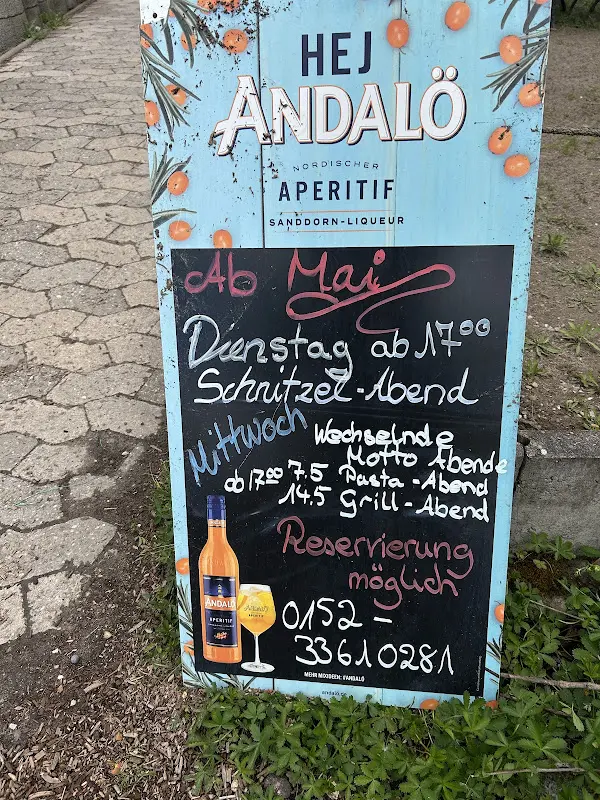 HEJ
ANDALÖ
NORDISCHER
APERITIF
SANDDORN-LIQUEUR
Ab Mai
Dienstag ab 17⁰⁰
Schnitzel-Abend
Mittwoch Wechselnde
Motto Abende
ab 17⁰⁰ 7.5 Pasta-Abend
14.5 Grill-Abend
Reservierung
möglich
0152-
33610281
ANDALÖ
APERITIF
ANDALÖ
MEHR MIXIDEEN: #ANDALÖ